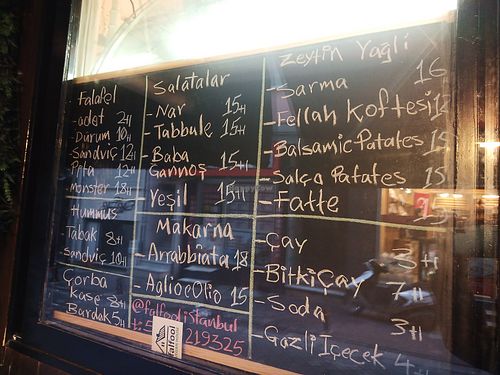 Falafel
- adet 2tl
- Dürüm 10tl
- Sandviç 12tl
Pita 12tl
Monster 18tl
Hummus
Tabak 8tl
Sandviç 10tl
Çorba
Kase 8tl
Bardak 5tl
Salatalar
- Nar 15tl
- Tabbule 15tl
- Baba
Gannoş 15tl
Yeşil 15tl
Makarna
- Arrabbiata 18
- Aglio e Olio 15
@falfoolistanbul
219325
falfool
Zeytin Yağli
- Sarma 16
- Fellah Köftesi
- Balsamic Patates 15
- Salça Patates 15
- Fatte 15
- Çay 3tl
- Bitki Çay 7tl
- Soda 3tl
- Gazli İçecek 4